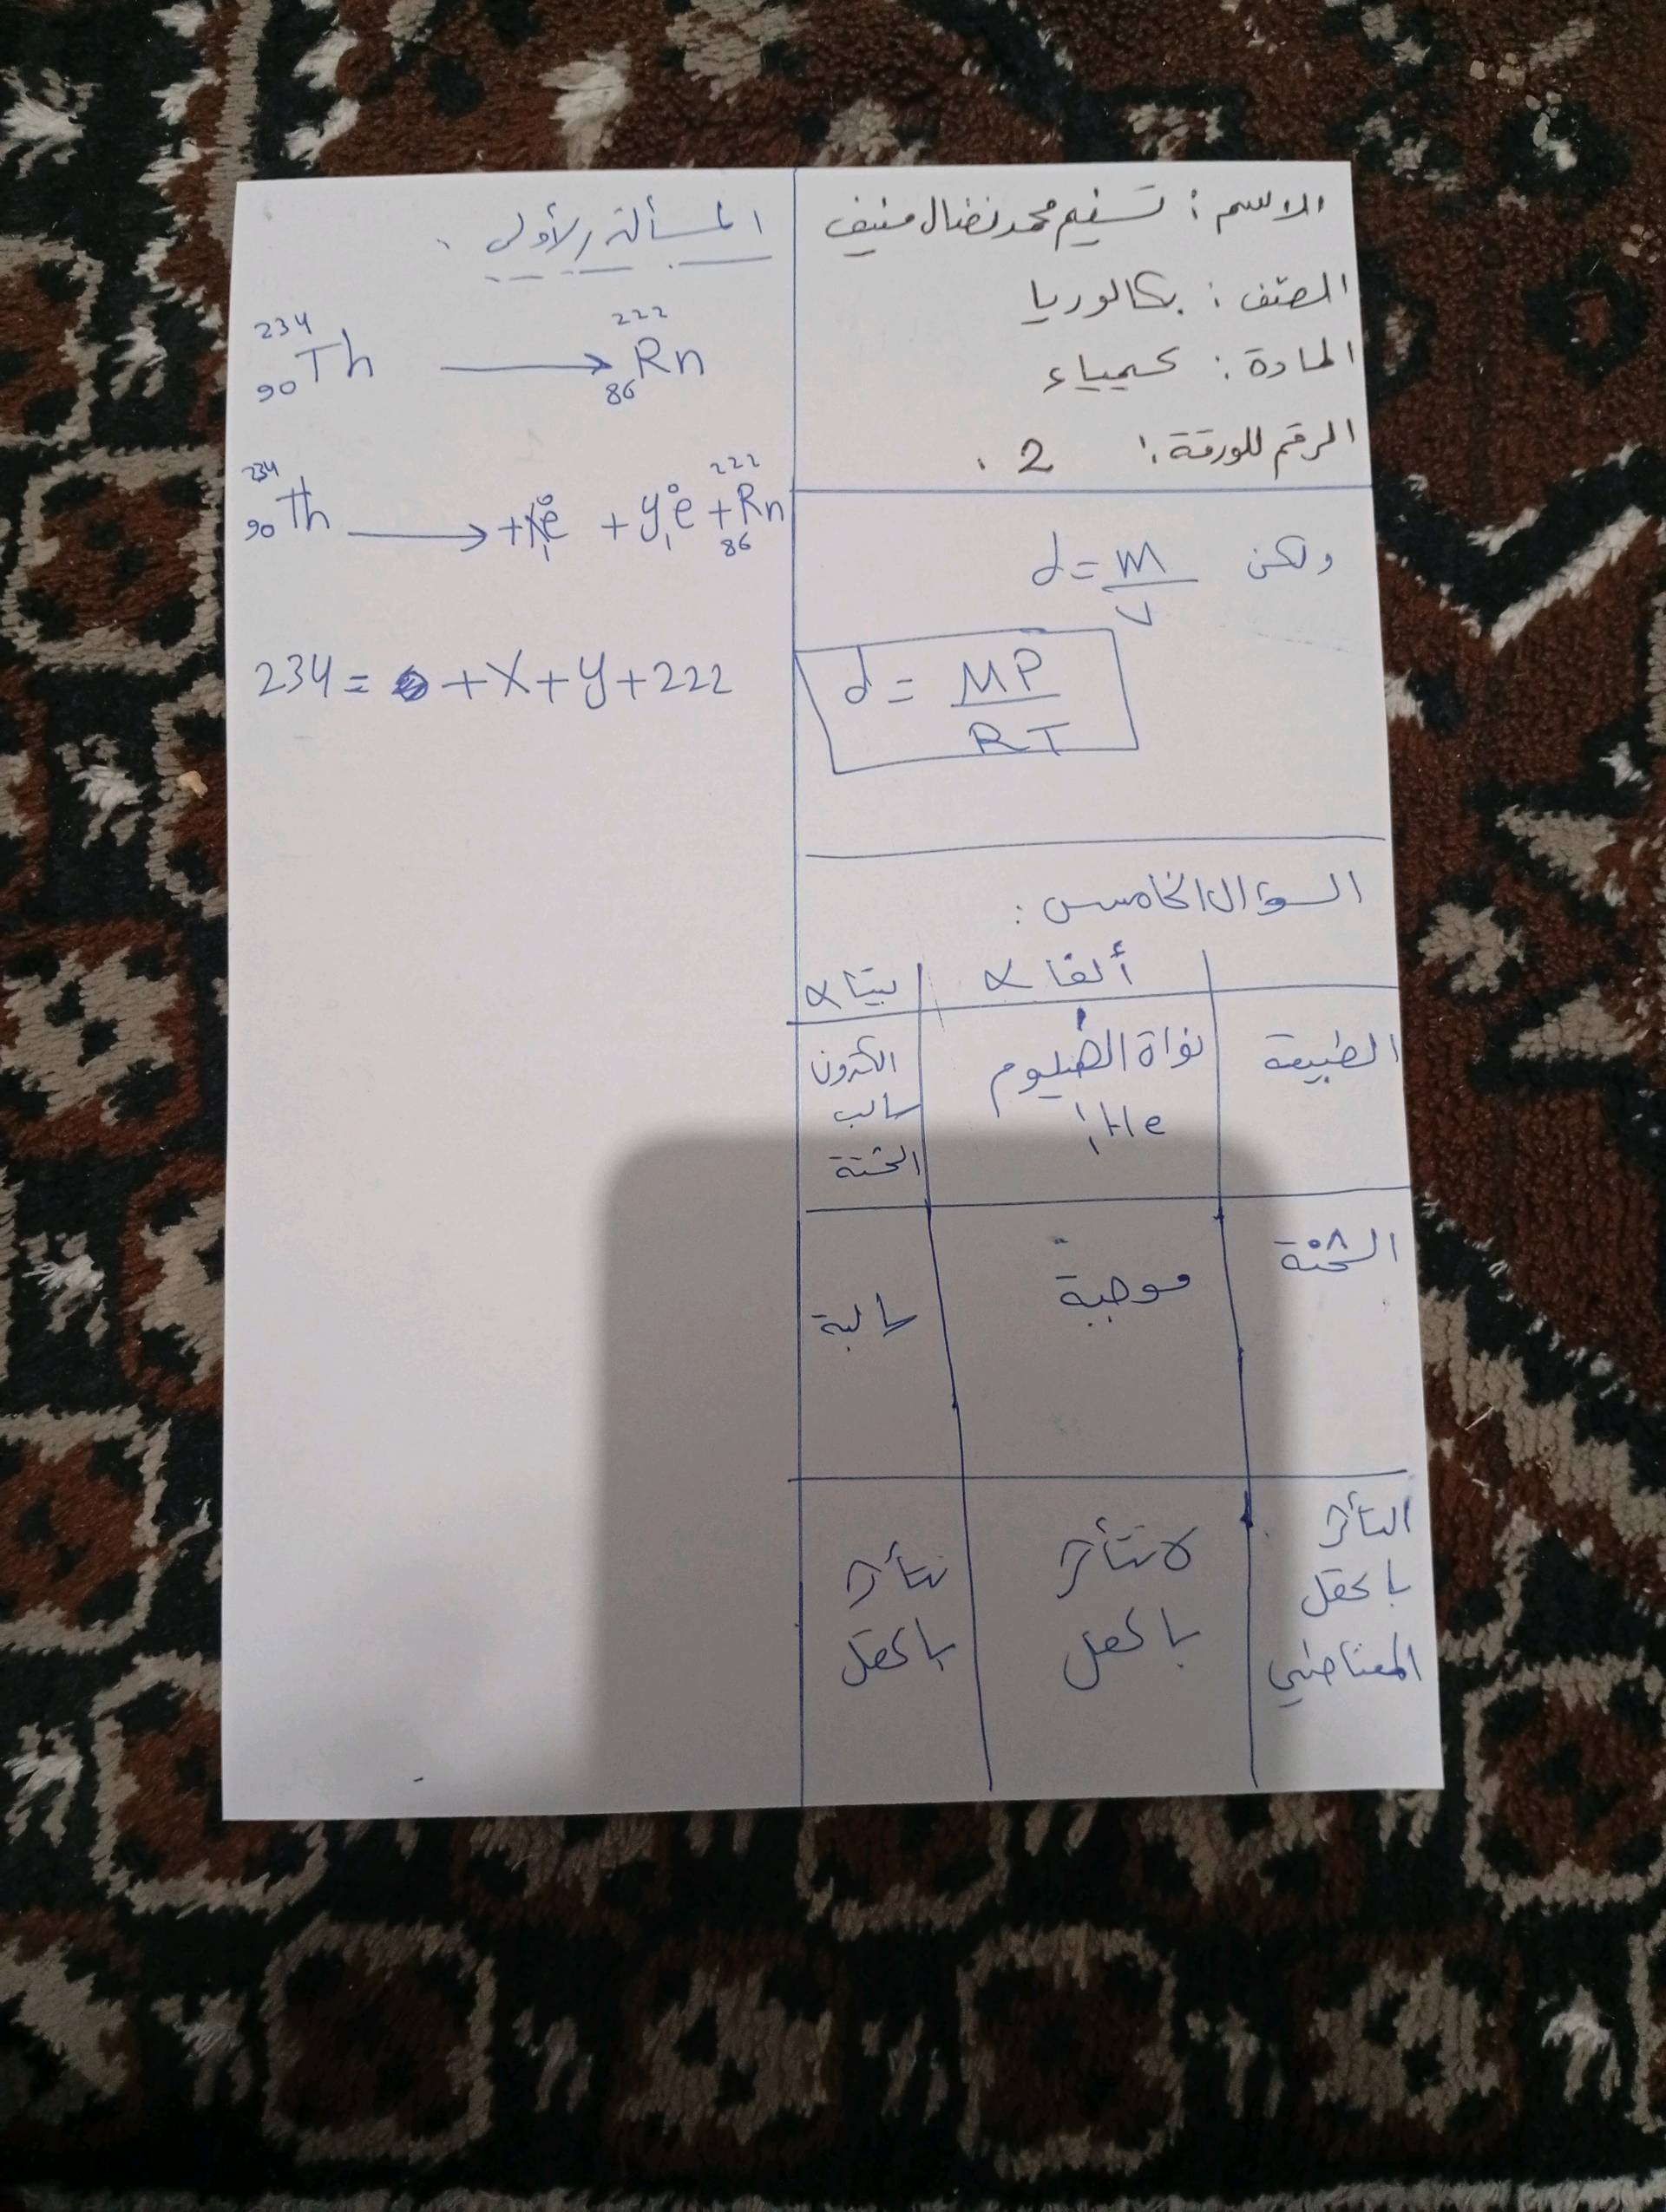 الاسم : تسنيم محمد نضال منيف
الصف : بكالوريا
المادة : كيمياء
الرقم للورقة : 2 .
ولكن d = m / V
d = MP / RT
السؤال الخامس :
ألفا α بيتا α
الطبيعة نواة الهيليوم He الكترون سالب الشحنة
الشحنة موجبة سالبة
التأثر بالحقل المغناطيسي لا تتأثر بالحقل تتأثر بالحقل
المسألة الأولى .
²³⁴₉₀Th → ²²²₈₆Rn
²³⁴₉₀Th → + x⁰₁e + y⁰₁e + ²²²₈₆Rn
234 = + x + y + 222